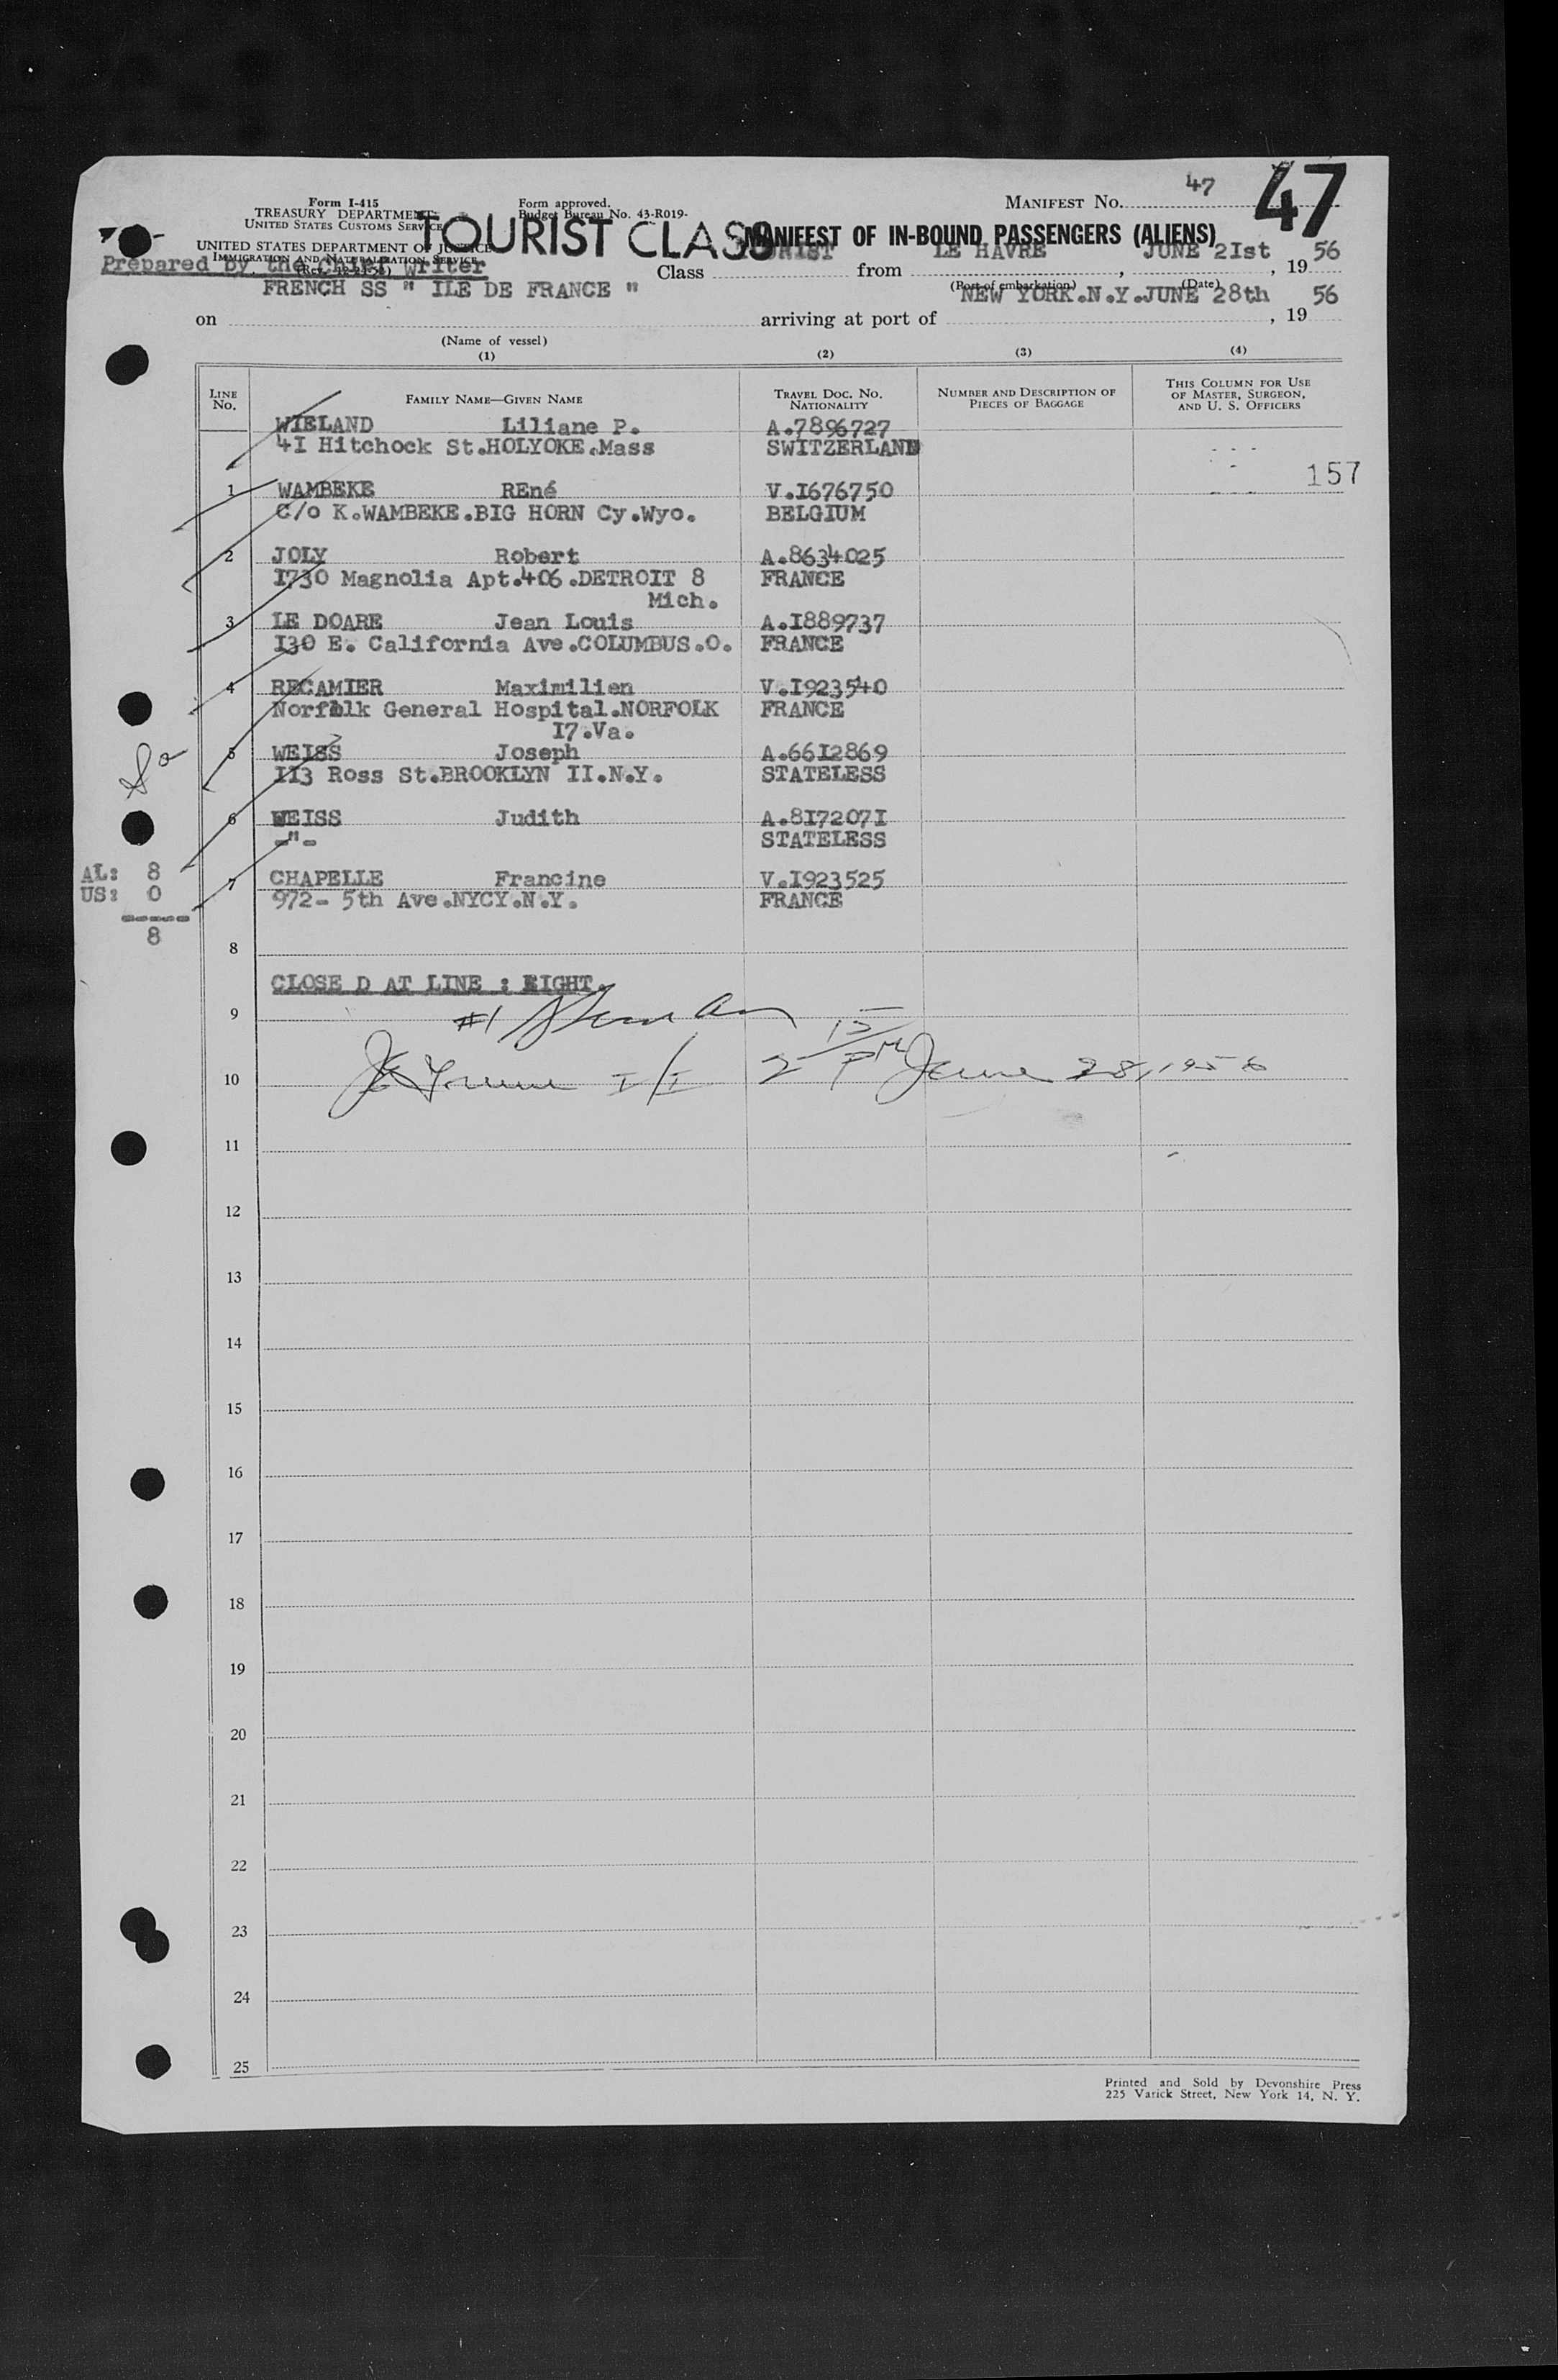 47
47
Form I-415
TREASURY DEPARTMENT
UNITED STATES CUSTOMS SERVICE
Form approved.
Budget Bureau No. 43-R019-
MANIFEST No.
UNITED STATES DEPARTMENT OF JUSTICE
IMMIGRATION AND NATURALIZATION SERVICE
TOURIST CLASS
MANIFEST OF IN-BOUND PASSENGERS (ALIENS)
Prepared by the Chief Writer
Class TOURIST from LE HAVRE, JUNE 2Ist, 19 56
(Port of embarkation) (Date)
FRENCH SS " ILE DE FRANCE " NEW YORK.N.Y.JUNE 28th 56
on arriving at port of , 19
(Name of vessel)
(1) (2) (3) (4)
LINE No. FAMILY NAME—GIVEN NAME TRAVEL DOC. NO. NATIONALITY NUMBER AND DESCRIPTION OF PIECES OF BAGGAGE THIS COLUMN FOR USE OF MASTER, SURGEON, AND U. S. OFFICERS
WIELAND Liliane P. A.7896727
4I Hitchock St.HOLYOKE.Mass SWITZERLAND
157
1 WAMBEKE REné V.I676750
C/o K.WAMBEKE.BIG HORN Cy.Wyo. BELGIUM
2 JOLY Robert A.8634025
I730 Magnolia Apt.406.DETROIT 8 FRANCE
Mich.
3 LE DOARE Jean Louis A.I889737
I30 E. California Ave.COLUMBUS.O. FRANCE
4 RECAMIER Maximilien V.I923540
Norfolk General Hospital.NORFOLK FRANCE
I7.Va.
5 WEISS Joseph A.66I2869
II3 Ross St.BROOKLYN II.N.Y. STATELESS
6 WEISS Judith A.8I7207I
-"- STATELESS
AL: 8
US: 0
-----
8
7 CHAPELLE Francine V.I923525
972- 5th Ave.NYCY.N.Y. FRANCE
8
CLOSE D AT LINE : EIGHT.
9 #1
10 I/I 2 15 PM June 28, 1956
11
12
13
14
15
16
17
18
19
20
21
22
23
24
25
Printed and Sold by Devonshire Press
225 Varick Street, New York 14, N. Y.